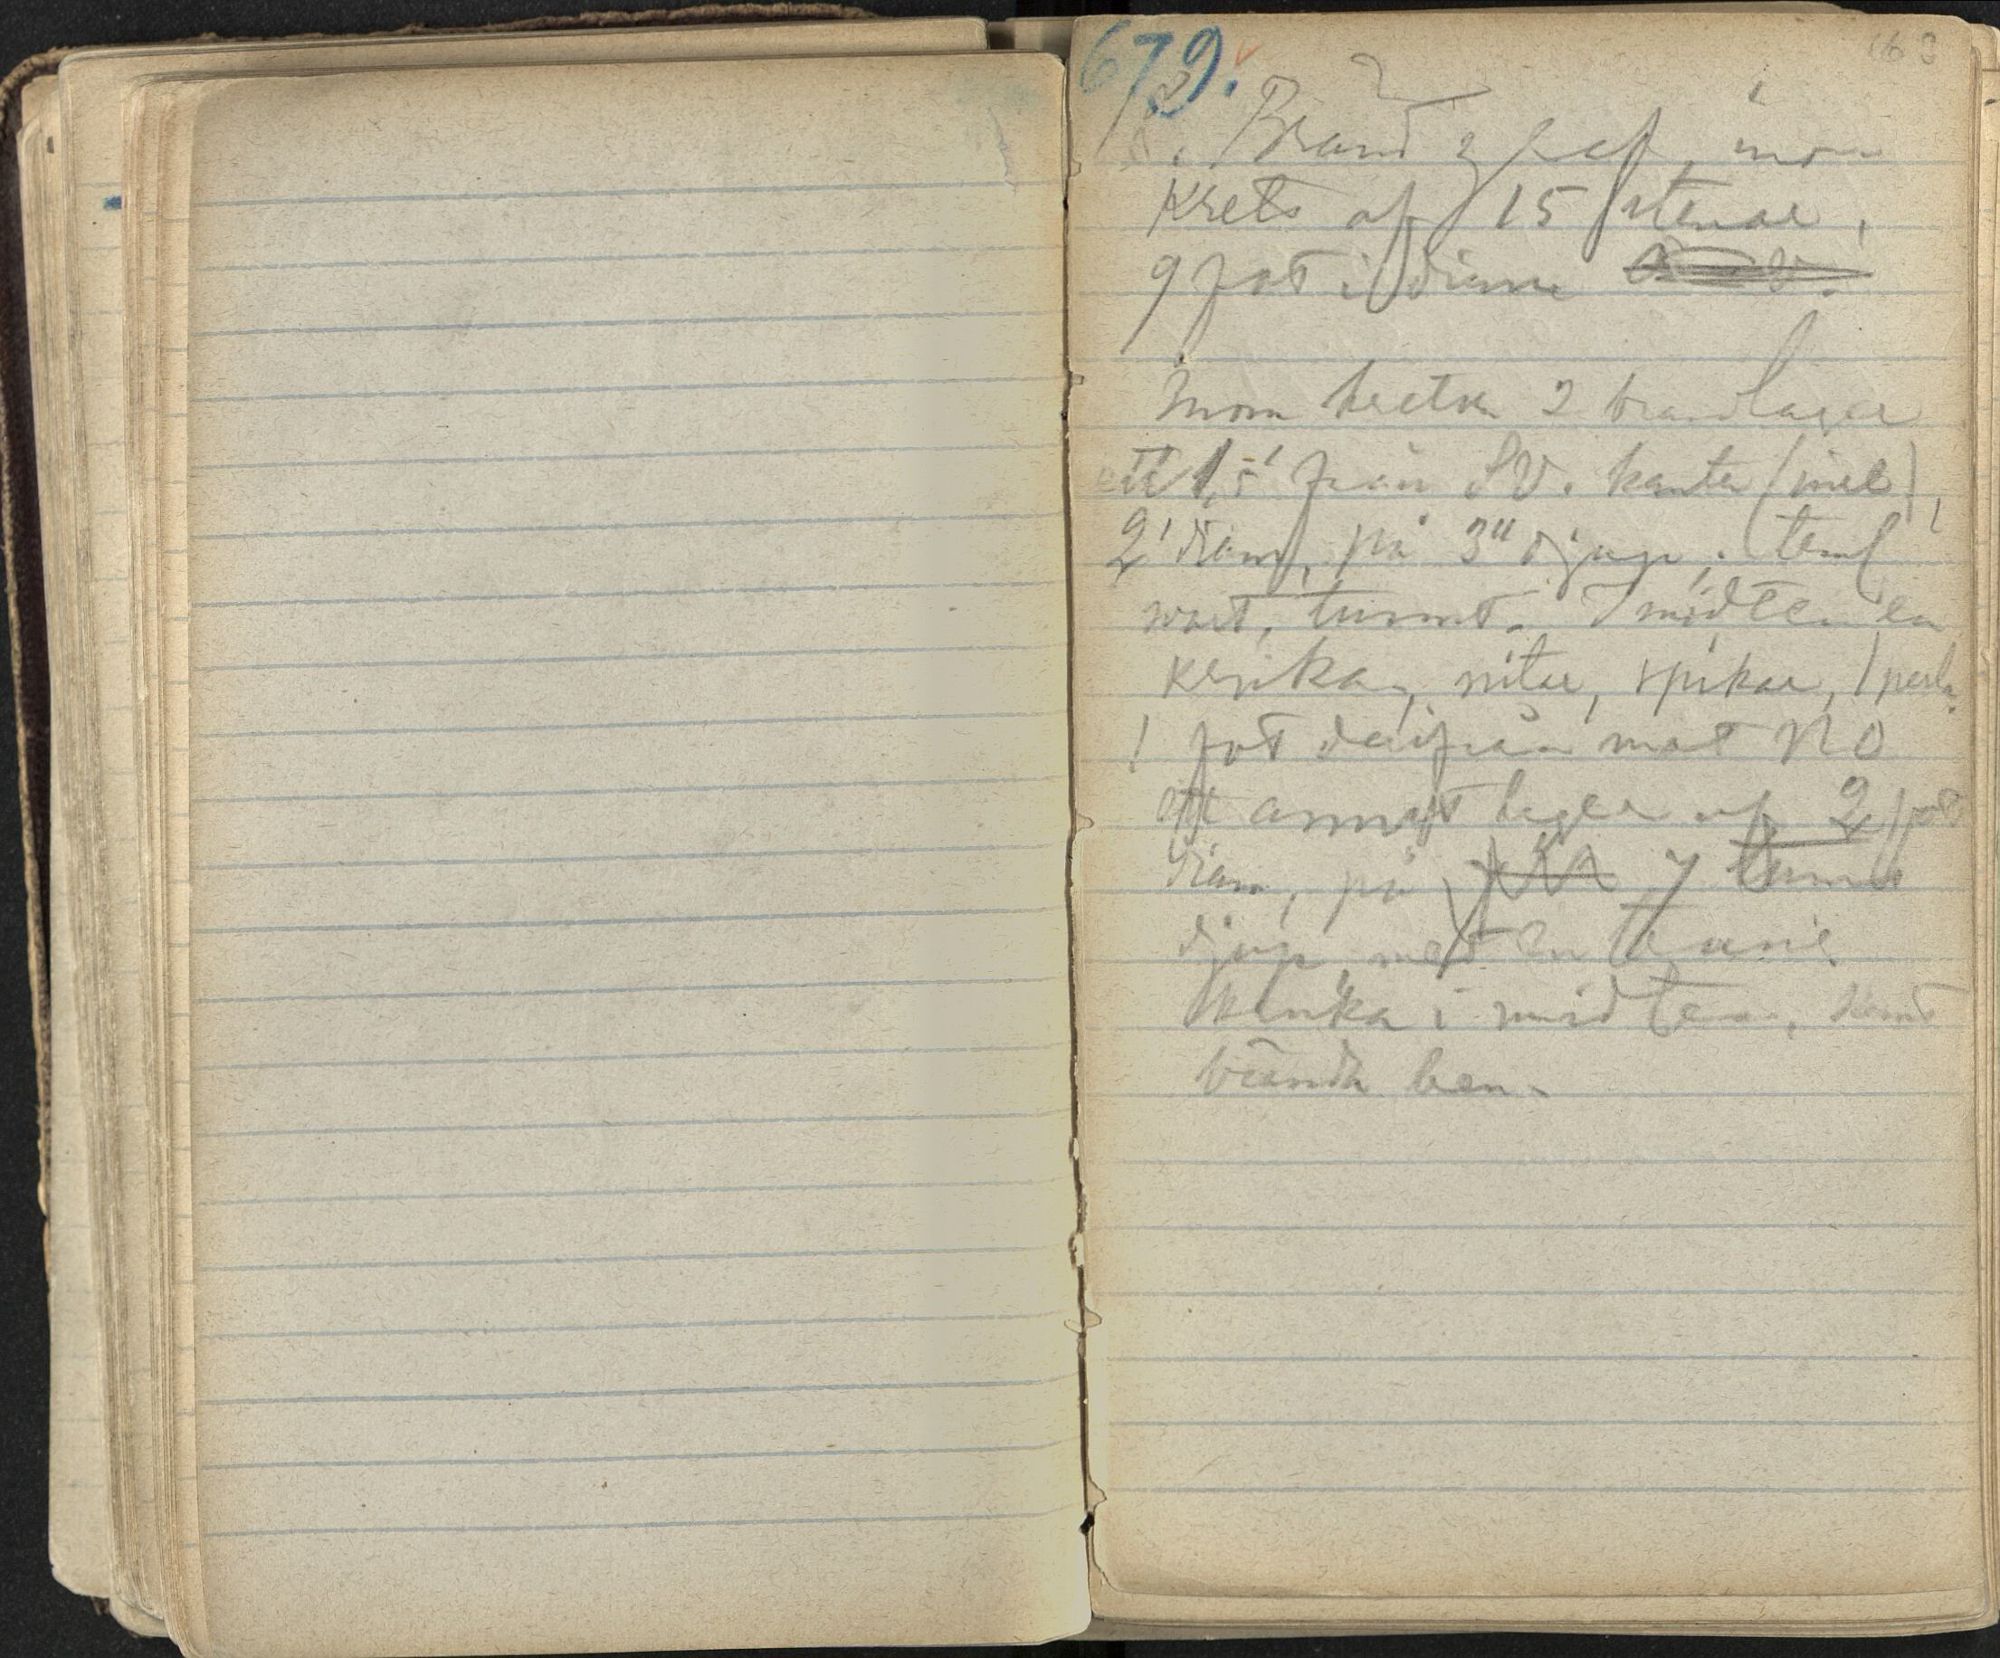 679.
Brandgraf, inom
krets af 15 stenar,
9 fot i diam
Inom kretsen 2 brandlager
ett 1,5' från SV. kanten
2' diam, på 3" djup, teml
svart, tunnt. I midten en
kruka, nitar, spikar, 1 perla.
1 fot därifrån mot NO
ett annat lager af 2 fot
diam, på 7 tums
djup, med en
kruka i midten, samt
brända ben.